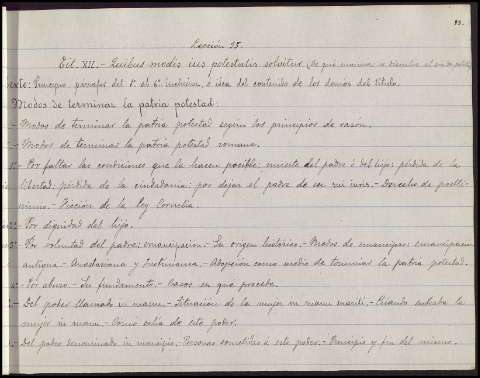 Lección 25.
Tit. XII.- Quibus modis ius potestatis solvitur (De qué manera se disuelve el
Principio, párrafos del 1º al 6º inclusive, é idea del contenido de los demás del título.
Modos de terminar la patria potestad:
- Modos de terminar la patria potestad según los principios de razón.
- Modos de terminar la patria potestad romana.
1º- Por faltar las condiciones que la hacen posible; muerte del padre ó del hijo; pérdida de la
libertad; pérdida de la ciudadanía; por dejar el padre de ser sui iuris.- Derecho de postli-
minio.- Ficción de la ley Cornelia.
2º- Por dignidad del hijo.
3º- Por voluntad del padre; emancipación.- Su origen histórico.- Modos de emancipar; emancipación
antigua.- Anastasiana y Justinianea.- Adopción como medio de terminar la patria potestad.
- Por abuso.- Su fundamento.- Casos en que procede.
- Del poder llamado in manu.- Situación de la mujer in manu mariti.- Cuando entraba la
mujer in manu.- Como salía de este poder.
- Del poder denominado in mancipio.- Personas sometidas á este poder.- Principio y fin del mismo.